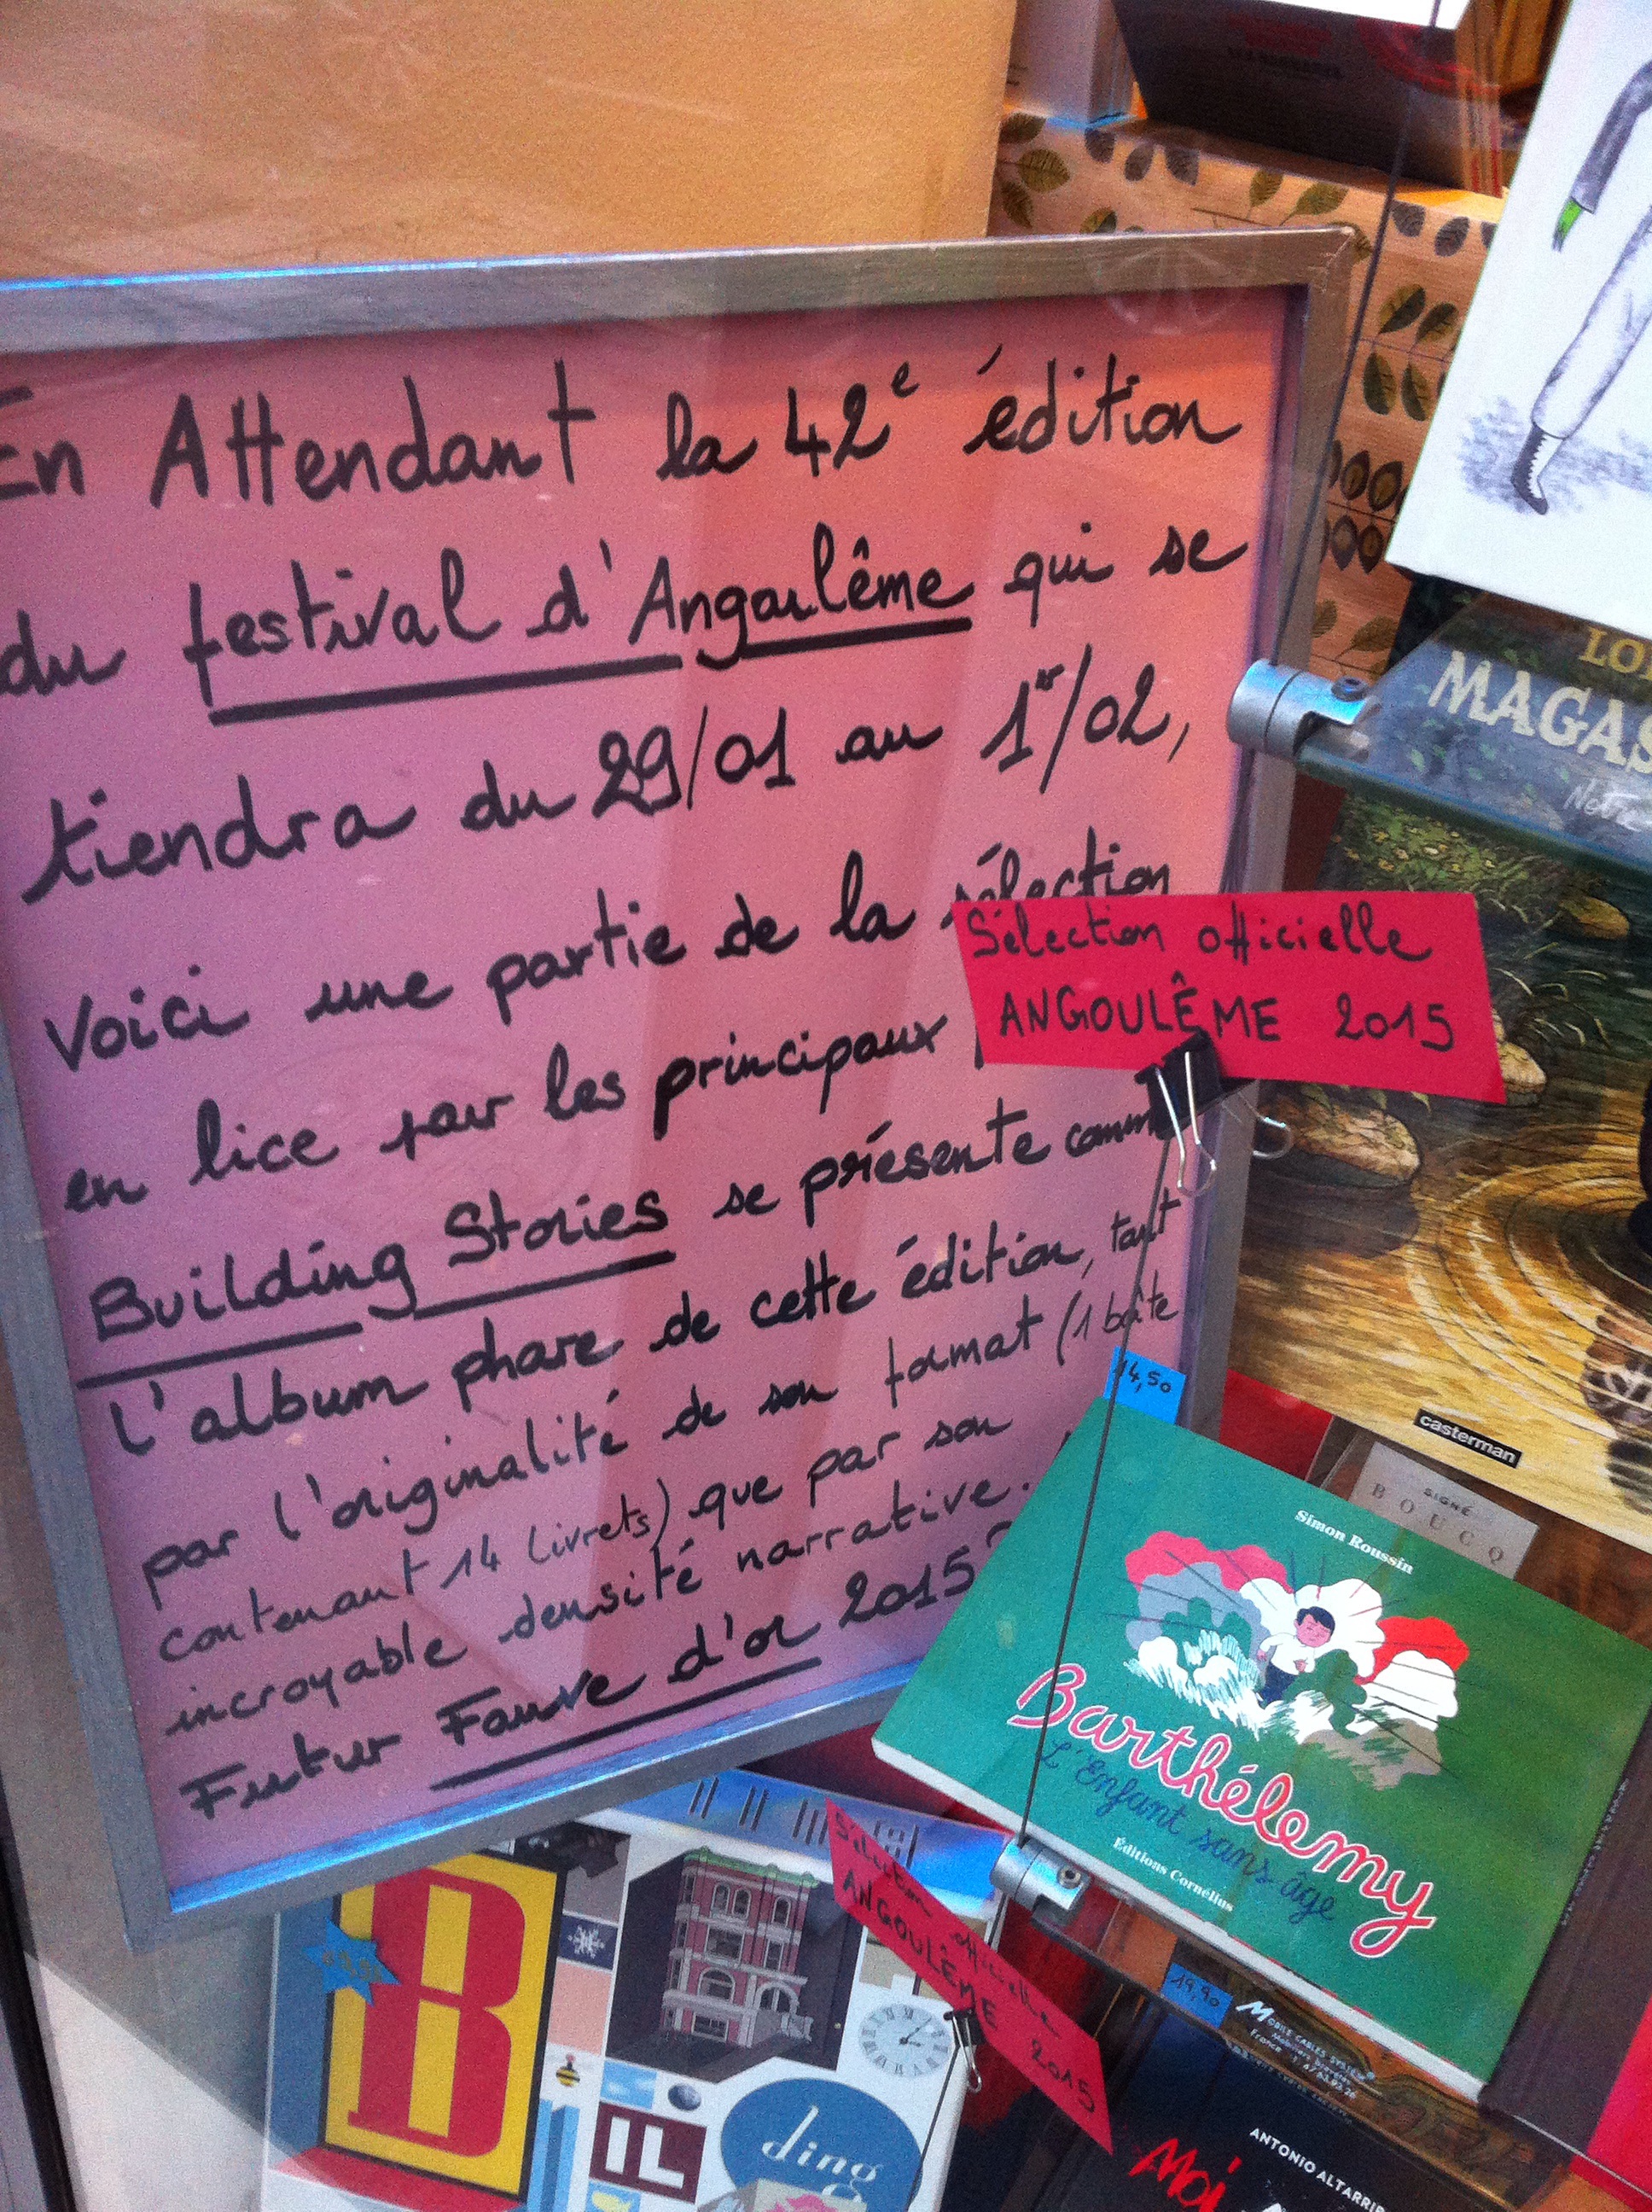 En Attendant la 42e édition
du festival d'Angoulême qui se
tiendra du 29/01 au 1er/02,
Voici une partie de la sélection
en lice pour les principaux
Building Stories se présente comme
l'album phare de cette édition, tant
par l'originalité de son format (1 boîte
contenant 14 livrets) que par son
incroyable densité narrative.
Futur Fauve d'or 2015?
Sélection officielle
ANGOULÊME 2015
MAGAS
casterman
SIGNÉ
BOUCQ
14,50
Simon Roussin
Barthélemy
L'Enfant sans âge
Éditions Cornélius
Sélection officielle
ANGOULÊME 2015
19,90
MOBILE CABLES SYSTÈM
B
IL
ding
ANTONIO ALTARRIB
Moi